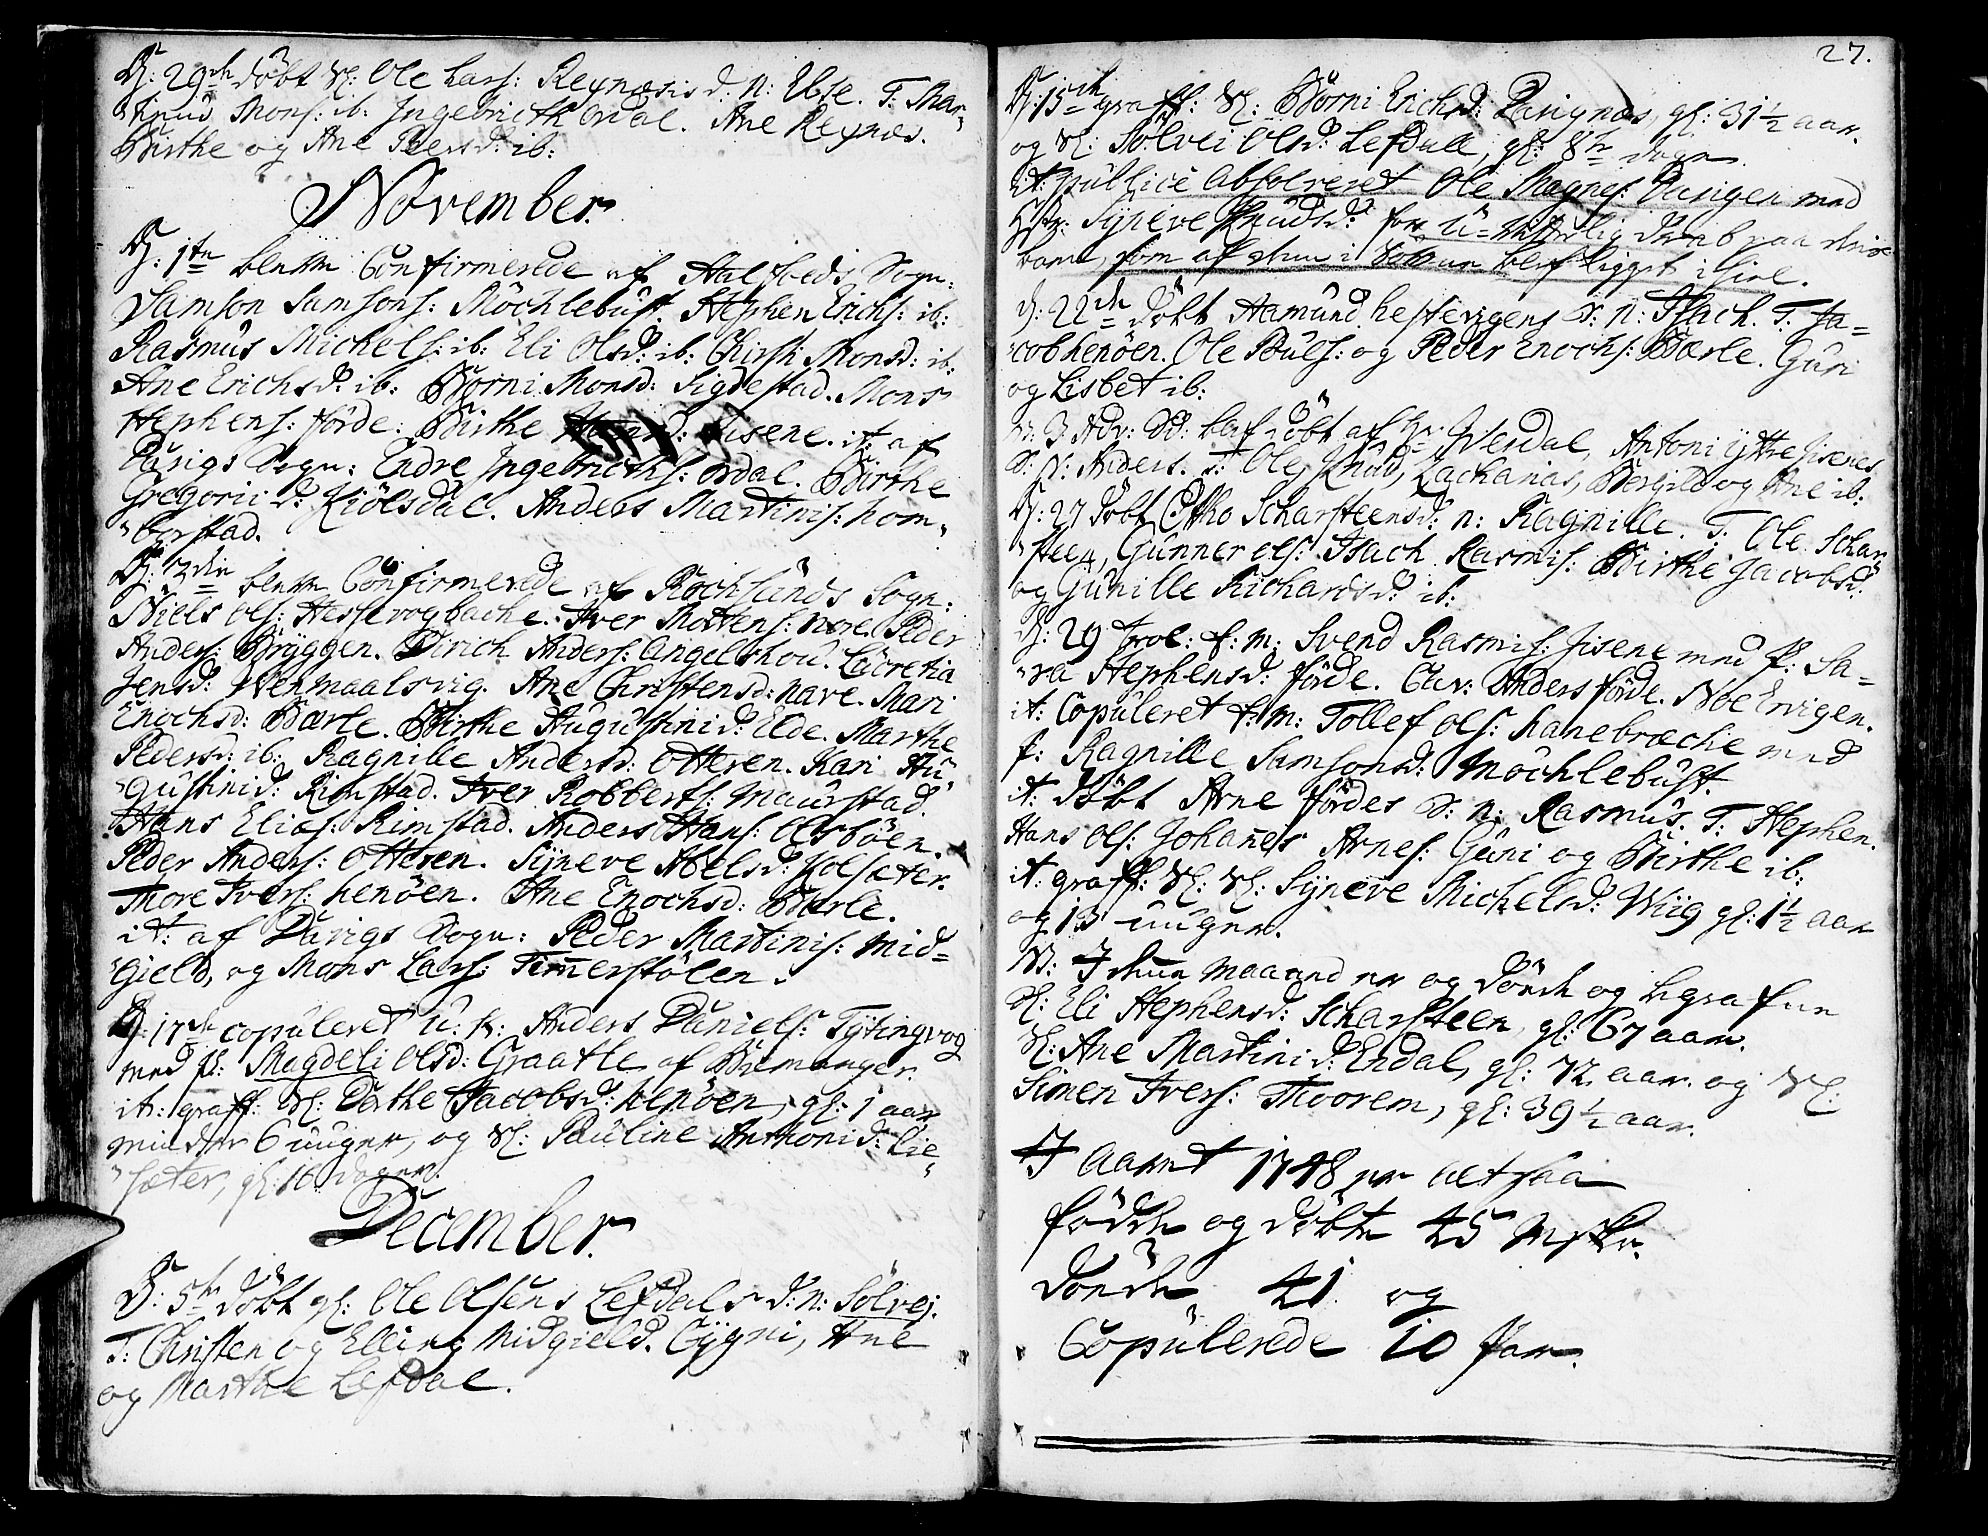 D: 29de döbt Sl: Ole Lars: Reynæsis d. n: Elsе. T: Mar-
Knud Mons: ib: Ingebricth Ordal. Ane Reynæs.
Birthe og Ane Peersd: ib:
November.
D: 1te bleve Confirmerede af Sogn:
Samson Samsons: Möchlebust. Stephen Erichs: ib:
Rasmus Michels: ib: Eli Olsd: ib: Chirsti Monsd: ib:
Ane Erichsd: ib: Börni Monsd: Sigdestad. Mons
Stephens: förde: Birthe Hansd: Iisene. it: af
Davigs Sogn: Endre Ingebricths: Ordal. Birthe
Gregorii d: Kiölsdal. Anders Martinis: hom-
"borstad.
D: 3die bleve Confirmerede af Rochsunds Sogn:
Niels Ols: Hessevogbache. Iver Mortens: nore. Peder
Anders: Bryggen. Dirich Anders: Angelshou. Lucretia
Jensd: Wenmaalsvig. Ane Christensd: nave. Mari
Enochsd: Bærle. Birthe Augustini d: Elde. Marthe
Pedersd: ib: Ragnille Andersd: Otteren. Kari Au-
"gustinid: Rimstad. Iver Robberts: Maurstad.
Hans Elias: Rimstad. Anders Hans: Olsböen.
Peder Anders: Otteren. Synneve Abelsd: Holsæter.
Thore Ivers: henöen. Ane Enochsd: Bærle.
it: af Davigs Sogn: Peder Martinis: Mid-
"gield, og Mons Lars: Timerstölen.
D: 17de copuleret U: K: Anders Daniels: Tytingvog
med P: Magdeli Olsd: Graatle af Bremanger
it: graff: Sl: Dorthe Jacobsd: henöen, gl: 1 aar
minder 6 uuger, og Sl: Pauline Anthonid: Lie-
"sæter, gl: 16 dager.
December.
D: 5te döbt gl: Ole Olsens Lefdals d: n: Sölvej.
T: Christen og Elling Midgield. Cygni, Ane
og Marthe Lefdal.
27.
D: 15de graff: Sl: Börni Erichsd: Davignæs, gl: 31½ aar.
og Sl: Sölvei Olsd: Lefdall, gl: 8te dage
it: publice absolveret Ole Magnes: Davigen med
Synneve Knudsd: for
barn, som af i Söfnen blef ligget ihiel.
D: 22de döbt Aamund hestevigens S: n: Isach. T: Ja-
"cob henöen. Ole Buls: og Peder Enochs: Bærle. Guri
og Lisbet ib:
D: 3 Adv: Sd: blef döbt af Hr: Werdal, Antoni yttre Iisenes
S: n: Anders. T: Ole, Knud, Zacharias, Börgild og Ane ib:
D: 27 döbt Otho Scharsteens d: n: Ragnille. T: Ole Schar-
"steen, Gunner Ols: Isach Rasmis: Birthe Jacobsd:
og Gunille Richardsd: ib:
D: 29 trol: f: m: Svend Rasmis: Iisene med P: Sa-
"ra Stephensd: förde. Cav: Anders förde. Noe Ervigen.
it: Copuleret f: m: Tollef Ols: hanebræche med
P: Ragnille Samsonsd: Möchlebust.
it: döbt Arne fördes S: n: Rasmus. T: Stephen.
Hans Ols: Johañes Arnes: Guni og Birthe ib:
it: graff: Sl: Sl: Synneve Michelsd: Wiig gl: 1½ aar
og 13 uuger.
N: I denne maaned er og döde og begrafne
Sl: Eli Stephensd: Scharsteen, gl: 67 aar.
Sl: Ane Martini d: Endal, gl: 72 aar. og Sl:
Simen Ivers: Thoorem, gl: 39½ aar.
I Aaret 1748 er altsaa
födde og döbte 45 Msker.
Döde 41 og
Copulerede 10 Par.